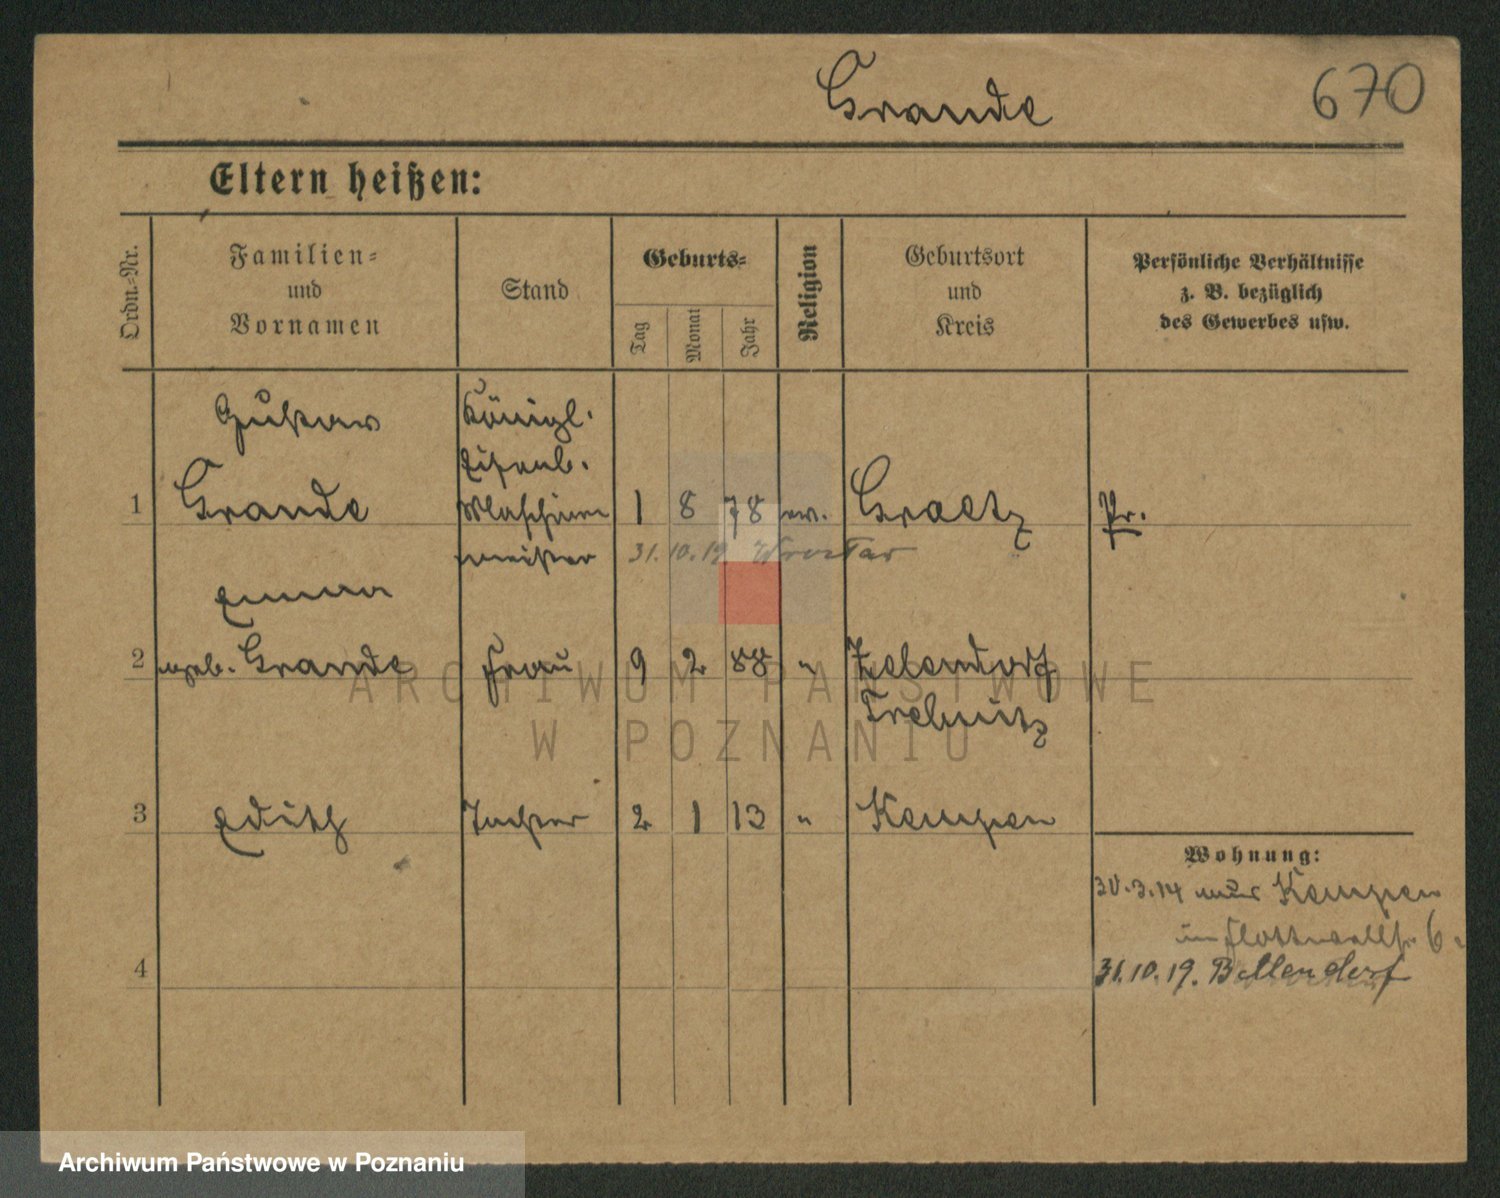 Grande
670
Eltern heißen:
Ordn.-Nr.
Familien-
und
Vornamen
Stand
Geburts-
Tag
Monat
Jahr
Religion
Geburtsort
und
Kreis
Persönliche Verhältnisse
z. B. bezüglich
des Gewerbes usw.
Gustav
Königl.
Eisenb.
1 Grande Maschinen 1 8 78 ev. Graetz Pr.
meister 31.10.19
Emma
2 geb. Grande Frau 9 2 88 "
Trebnitz
3 Edith Tochter 2 1 13 " Kempen
Wohnung:
30.3.14 Kempen
Flottwellstr. 6
4
31.10.19.
ARCHIWUM PAŃSTWOWE
W POZNANIU
Archiwum Państwowe w Poznaniu